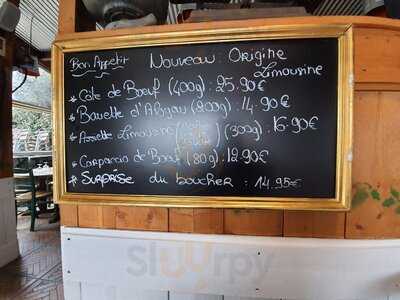 Bon Appetit
Nouveau : Origine
Limousine
* Côte de Bœuf (400g) : 25.90€
* Bavette d'Aloyau (200g) : 14.90€
* Assiette Limousine (300g) : 16.90€
* Carpaccio de Bœuf (80g) : 12.90€
* SURPRISE du boucher : 14.95€
Sluurpy